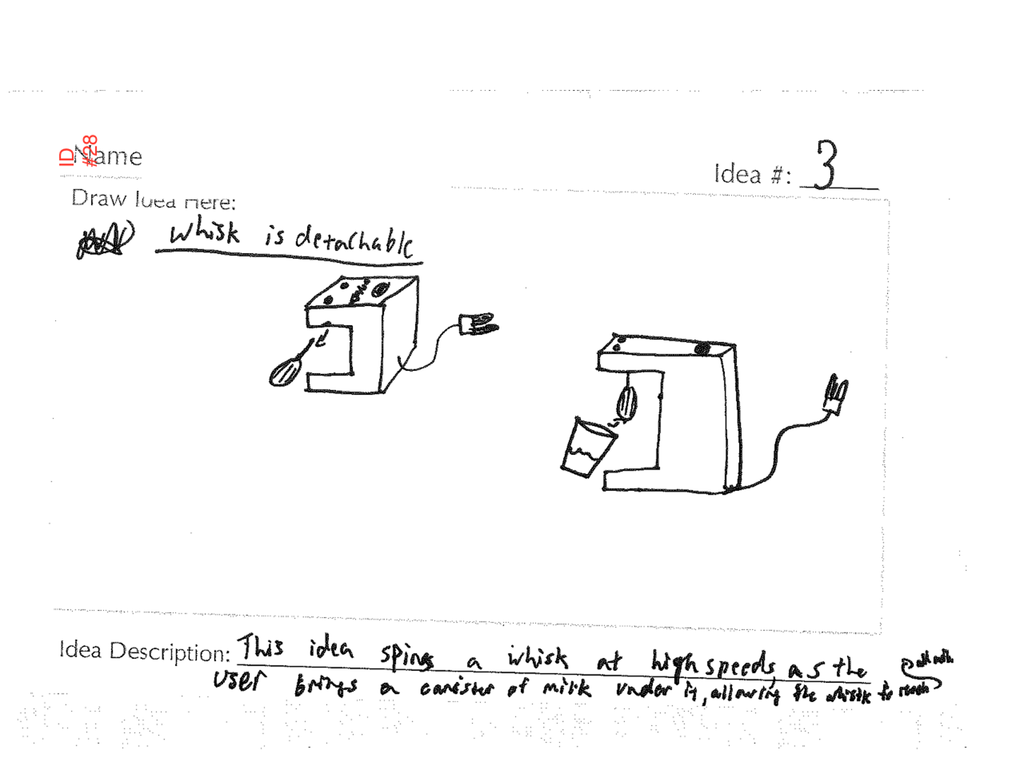 ID
#28
Name
Idea #: 3
Draw Idea Here:
whisk is detachable
Idea Description: This idea spins a whisk at high speeds, as the
user brings a canister of milk under it, allowing the whisk to reach
all milk